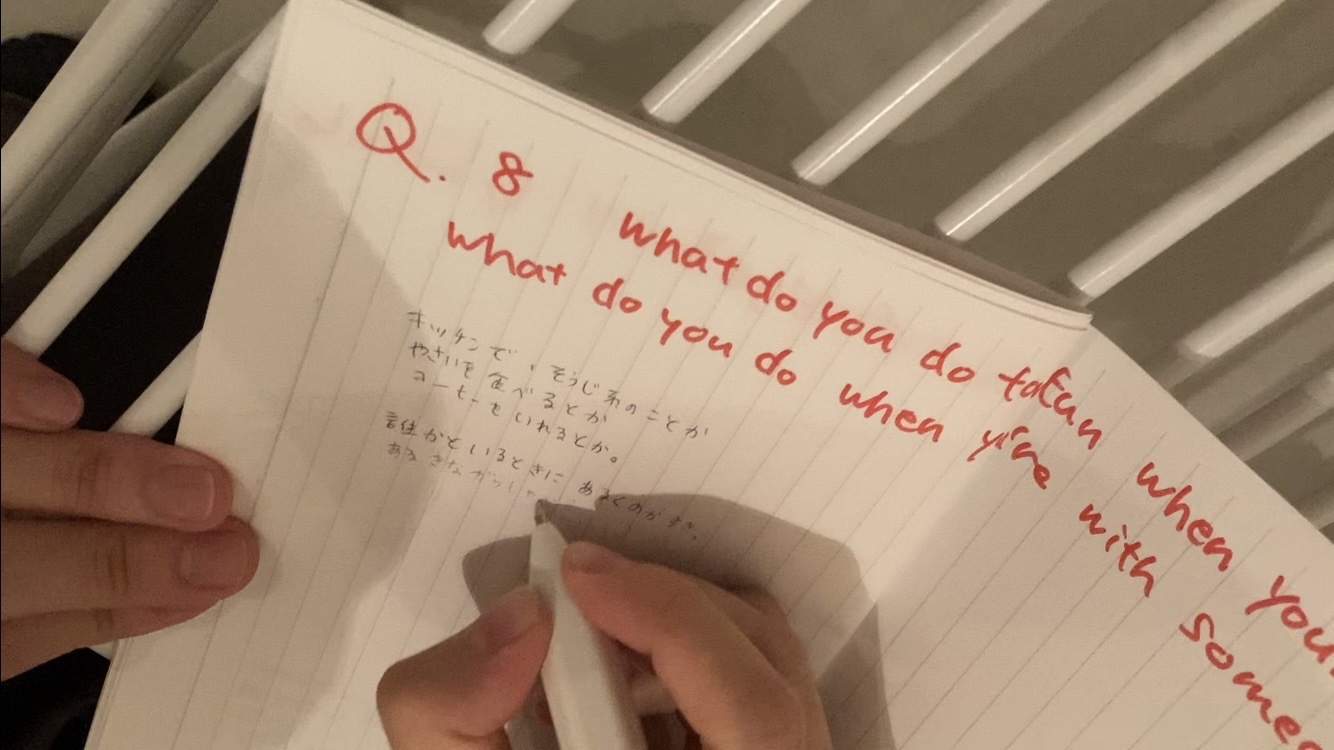 Q. 8 what do you do to fun when you
what do you do when you're with some
キッチンで、そうじ系のことか
やさいを食べるとか
コーヒーをいれるとか。
誰かといるときに あるくのがすき。
あるきながら